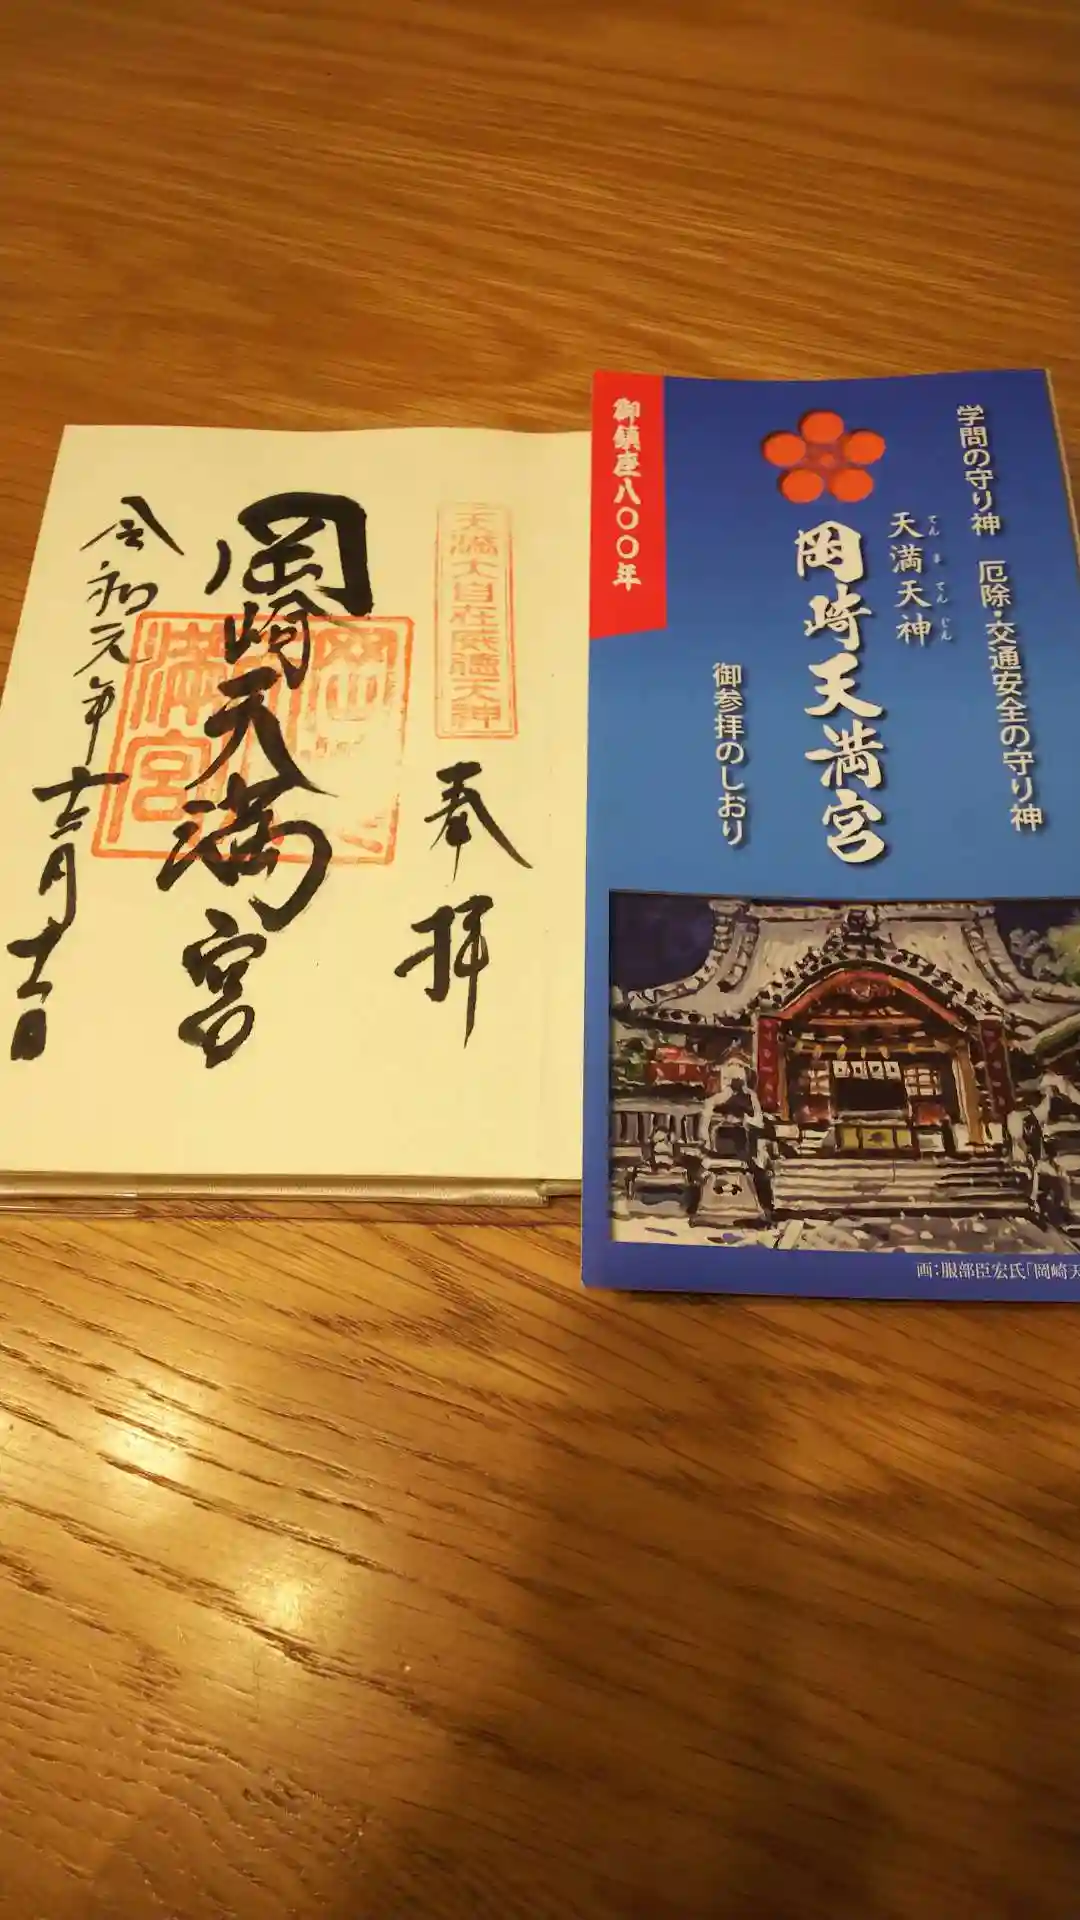 天満大自在威徳天神
奉拝
岡崎天満宮
令和元年十二月十一日
御鎮座八〇〇年
学問の守り神 厄除・交通安全の守り神
天満天神
てんまてんじん
岡崎天満宮
御参拝のしおり
画:服部臣宏氏「岡崎天